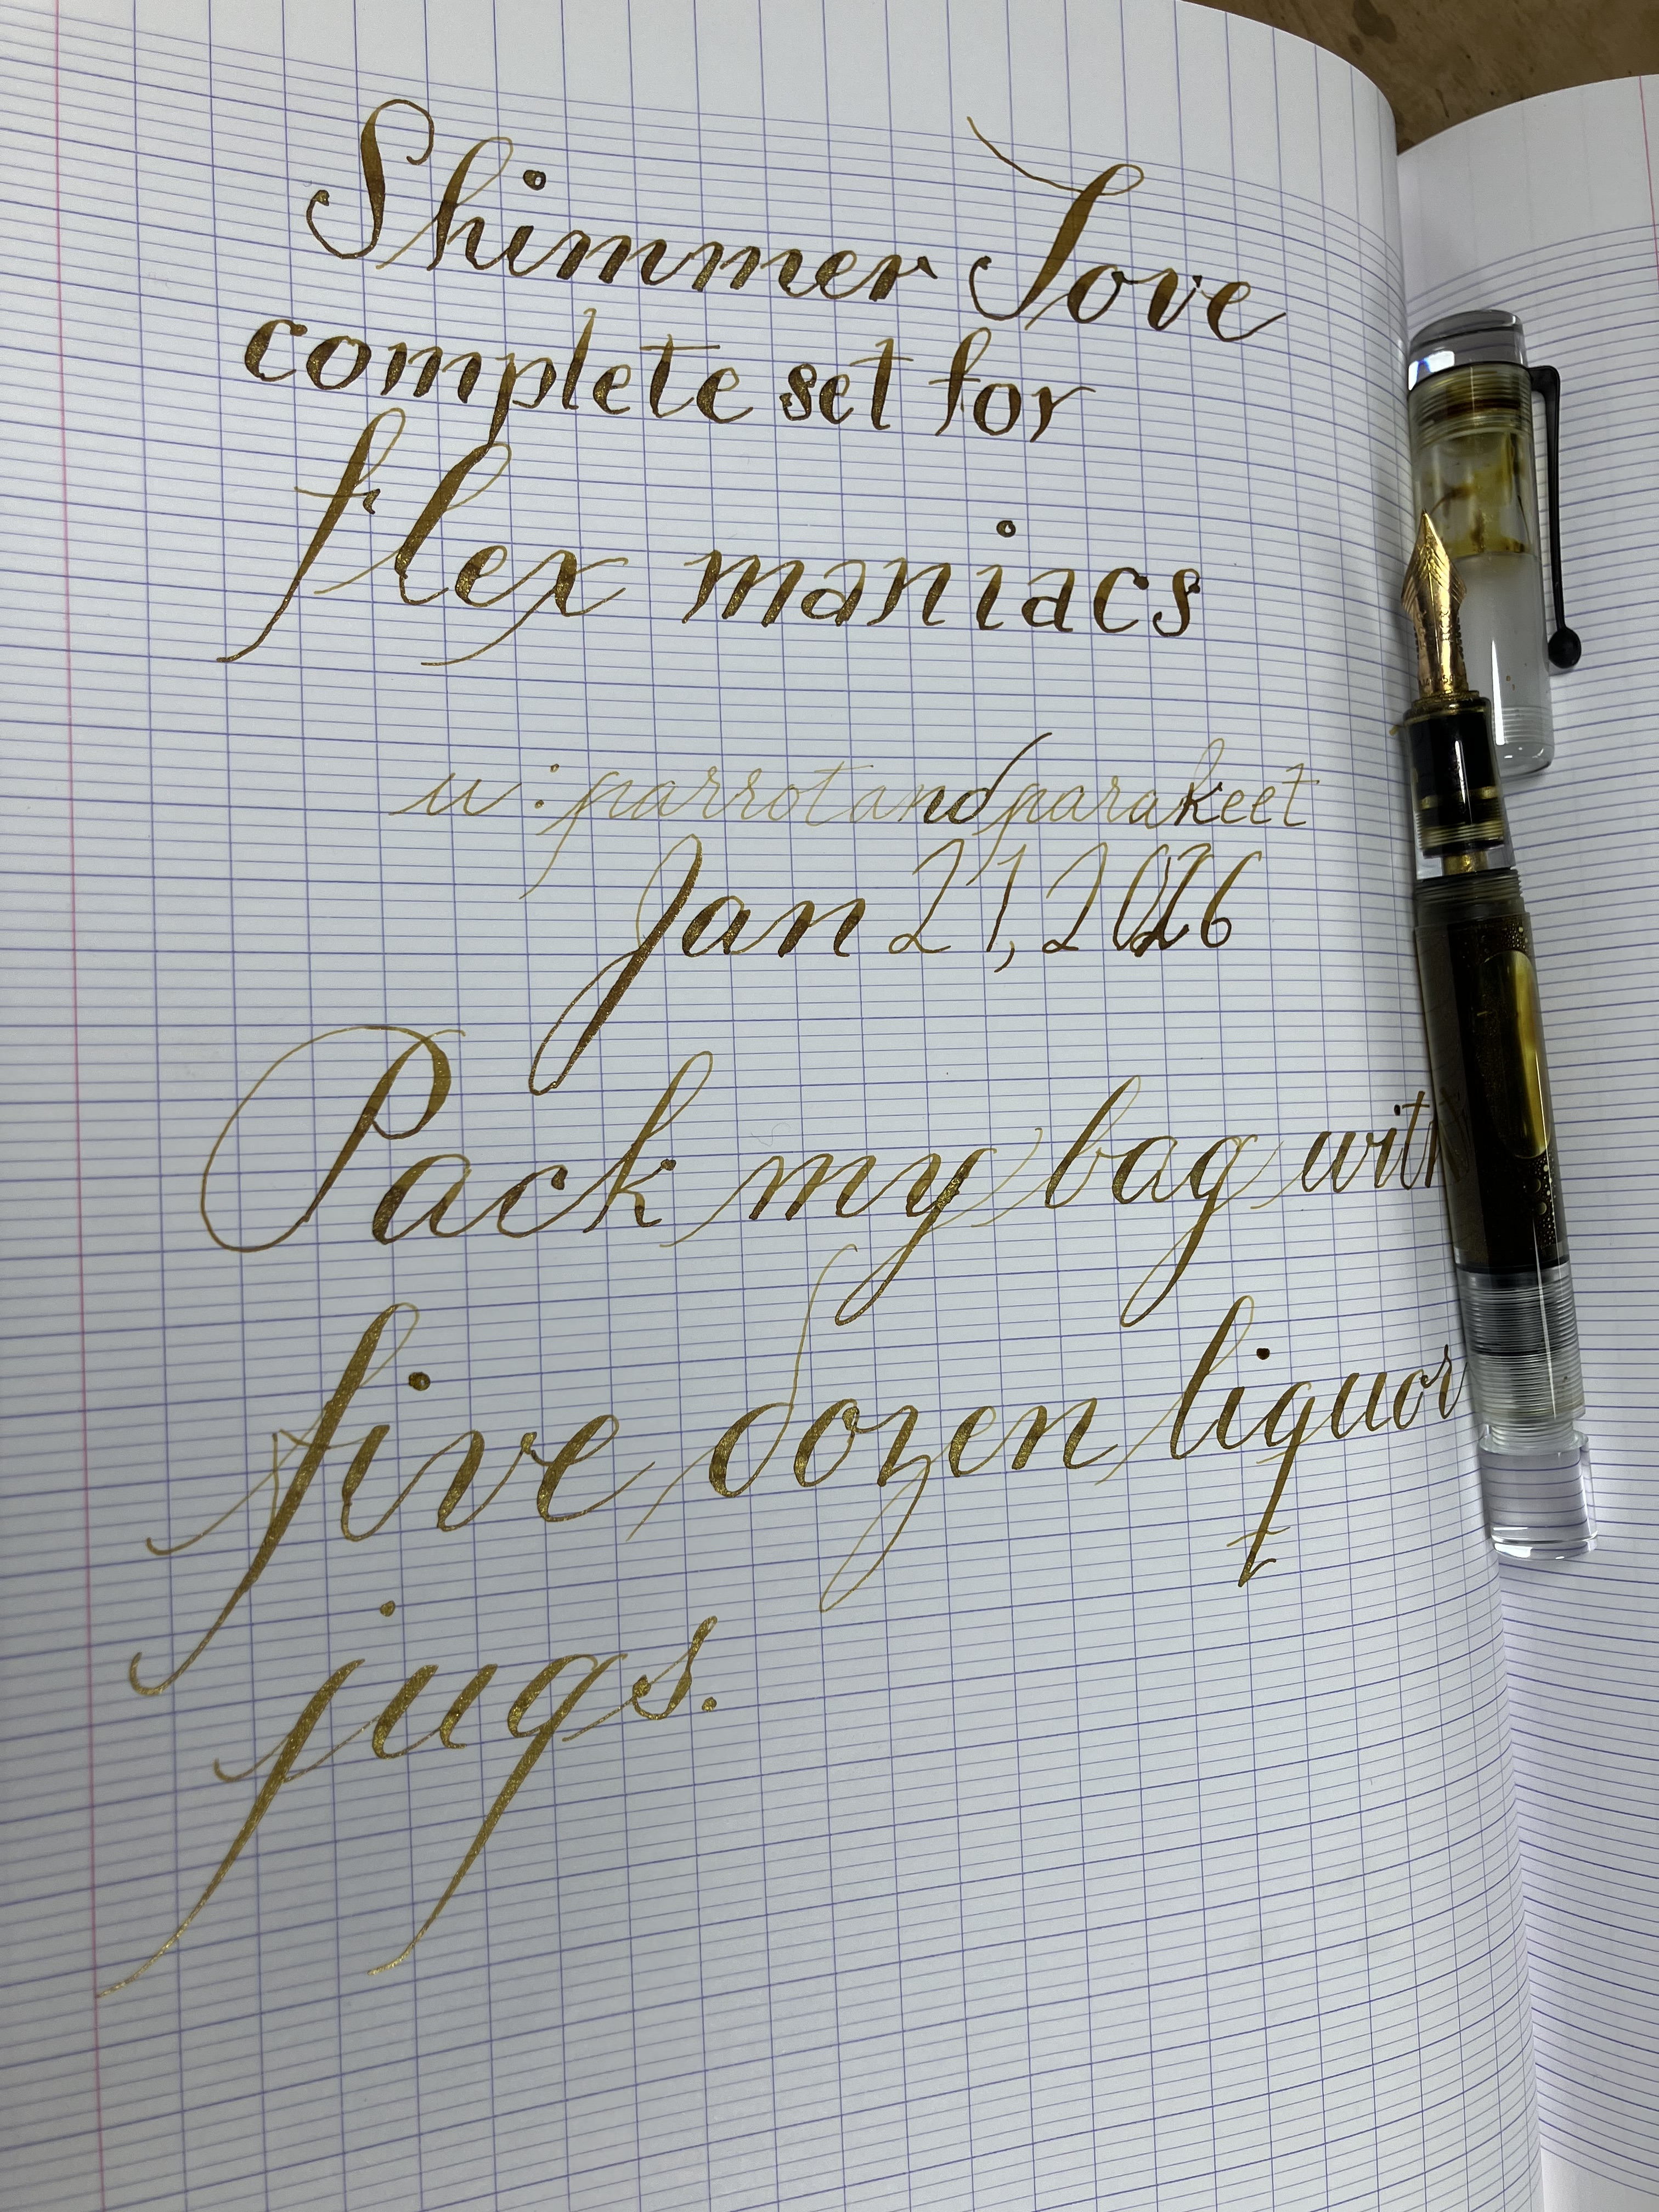 Shimmer Love
complete set for
flex maniacs
u: parrotandparakeet
Jan 21, 2026
Pack my bag with
five dozen liquor
jugs.